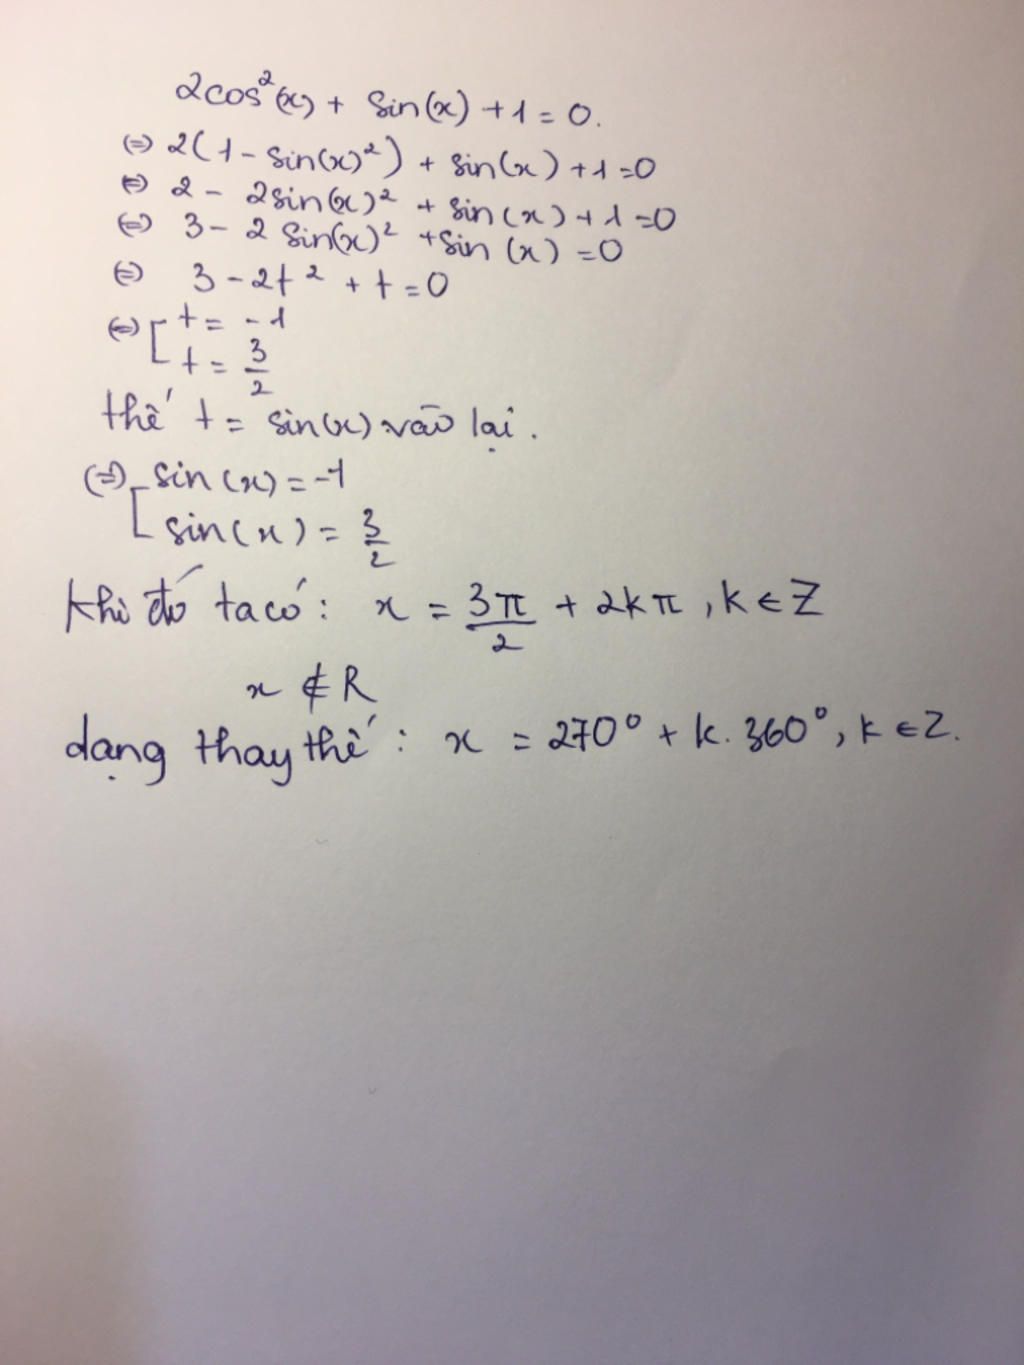 2cos²(x) + sin(x) + 1 = 0.
(=) 2(1 - sin(x)²) + sin(x) + 1 = 0
(=) 2 - 2sin(x)² + sin(x) + 1 = 0
(=) 3 - 2 sin(x)² + sin(x) = 0
(=) 3 - 2t² + t = 0
(=) [ t = -1
t = 3/2
thế t = sin(x) vào lại.
(=) [ sin(x) = -1
sin(x) = 3/2
Khi đó ta có: x = 3π/2 + 2kπ, k ∈ Z
x ∉ R
dạng thay thế: x = 270° + k.360°, k ∈ Z.